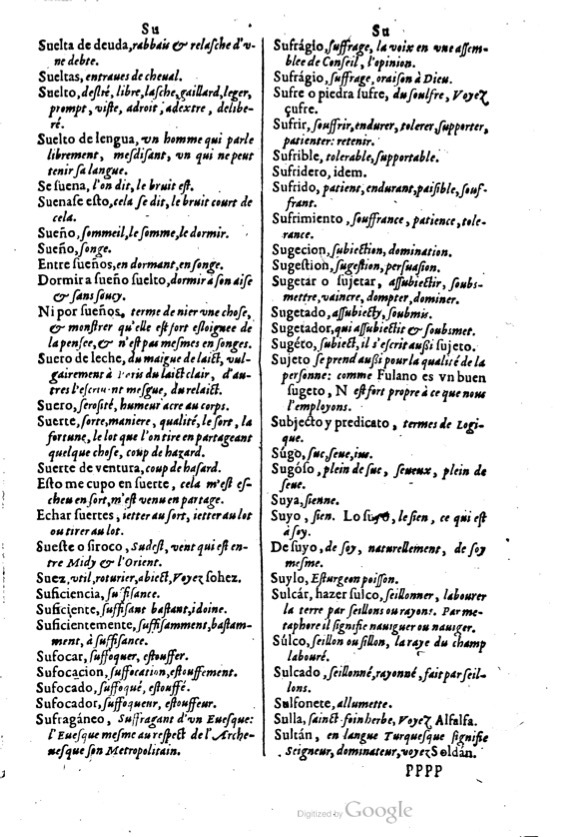 Su
Suelta de deuda, rabbais & relasche d'v-
ne debte.
Sueltas, entraues de cheual.
Suelto, destré, libre, lasche, gaillard, leger,
prompt, viste, adroit, adextre, delibe-
ré.
Suelto de lengua, vn homme qui parle
librement, mesdisant, vn qui ne peut
tenir sa langue.
Se suena, l'on dit, le bruit est.
Suenase esto, cela se dit, le bruit court de
cela.
Sueño, sommeil, le somme, le dormir.
Sueño, songe.
Entre sueños, en dormant, en songe.
Dormir a sueño suelto, dormir à son aise
& sans soucy.
Ni por sueños, terme de nier vne chose,
& monstrer qu'elle est fort essoignee de
la pensee, & n'est pas mesmes en songes.
Suero de leche, du maigue de laict, vul-
gairement à Paris du laict clair, d'au-
tres l'escriuent mesgue, du relaict.
Suero, serosité, humeur acre au corps.
Suerte, sorte, maniere, qualité, le sort, la
fortune, le lot que l'on tire en partageant
quelque chose, coup de hazard.
Suerte de ventura, coup de hasard.
Esto me cupo en suerte, cela m'est es-
cheu en sort, m'est venu en partage.
Echar suertes, ietter au sort, ietter au lot
ou tirer au lot.
Sueste o siroco, Sudest, vent qui est en-
tre Midy & l'Orient.
Suez, vil, roturier, abiect, Voyez sohez.
Suficiencia, suffisance.
Suficiente, suffisant bastant, idoine.
Suficientemente, suffisamment, bastam-
ment, à suffisance.
Sufocar, suffoquer, estouffer.
Sufocacion, suffocation, estouffement.
Sufocado, suffoqué, estouffé.
Sufocador, suffoqueur, estouffeur.
Sufragáneo, Suffragant d'vn Euesque:
l'Euesque mesme au respect de l'Arche-
uesque son Metropolitain.
Su
Sufrágio, suffrage, la voix en vne assem-
blee de Conseil, l'opinion.
Sufrágio, suffrage, oraison à Dieu.
Sufre o piedra sufre, du soulfre, Voyez
çufre.
Sufrir, souffrir, endurer, tolerer, supporter,
patienter: retenir.
Sufrible, tolerable, supportable.
Sufridero, idem.
Sufrido, patient, endurant, paisible, souf-
frant.
Sufrimiento, souffrance, patience, tole-
rance.
Sugecion, subiection, domination.
Sugestion, sugestion, persuasion.
Sugetar o sujetar, assubiectir, soubs-
mettre, vaincre, dompter, dominer.
Sugetado, assubiecty, soubmis.
Sugetador, qui assubiectit & soubsmet.
Sugéto, subiect, il s'escrit außi sujeto.
Sujeto se prend außi pour la qualité de la
personne: comme Fulano es vn buen
sugeto, N est fort propre à ce que nous
l'employons.
Subjecto y predicato, termes de Logi-
que.
Súgo, suc, seue, ius.
Sugóso, plein de suc, seueux, plein de
seue.
Suya, sienne.
Suyo, sien. Lo suyo, le sien, ce qui est
à soy.
De suyo, de soy, naturellement, de soy
mesme.
Suylo, Esturgeon poisson.
Sulcár, hazer sulco, seillonner, labourer
la terre par seillons ou rayons. Par me-
taphore il signifie nauiguer ou nauiger.
Súlco, seillon ou sillon, la raye du champ
labouré.
Sulcado, seillonné, rayonné, fait par seil-
lons.
Sulfonete, allumette.
Sulla, sainct-foin herbe, Voyez Alfalfa.
Sultán, en langue Turquesque signifie
Seigneur, dominateur, voyez Soldán.
PPPP
Digitized by Google